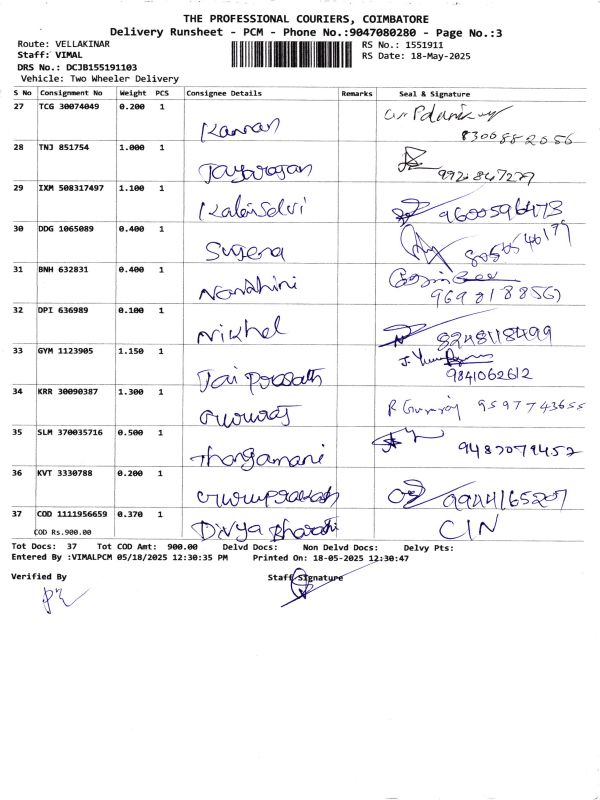 THE PROFESSIONAL COURIERS, COIMBATORE
Delivery Runsheet - PCM - Phone No.:9047080280 - Page No.:3
Route: VELLAKINAR RS No.: 1551911
Staff: VIMAL RS Date: 18-May-2025
DRS No.: DCJB155191103
Vehicle: Two Wheeler Delivery
S No Consignment No Weight PCS Consignee Details Remarks Seal & Signature
27 TCG 30074049 0.200 1
Kannan
8300882056
28 TNJ 851754 1.000 1
Jayarajan
29 IXM 508317497 1.100 1
Kalaiselvi 9600596473
30 DDG 1065089 0.400 1
31 BNH 632831 0.400 1
Nandhini
32 DPI 636989 0.100 1
Nikhel 8248118499
33 GYM 1123905 1.150 1
Jai Prasath 9841062612
34 KRR 30090387 1.300 1
9597743655
35 SLM 370035716 0.500 1
Thangamani 9487079452
36 KVT 3330788 0.200 1
Guruprasath 9944165207
37 COD 1111956659 0.370 1
COD Rs.900.00 Divya Bharathi CIN
Tot Docs: 37 Tot COD Amt: 900.00 Delvd Docs: Non Delvd Docs: Delvy Pts:
Entered By :VIMALPCM 05/18/2025 12:30:35 PM Printed On: 18-05-2025 12:30:47
Verified By Staff Signature